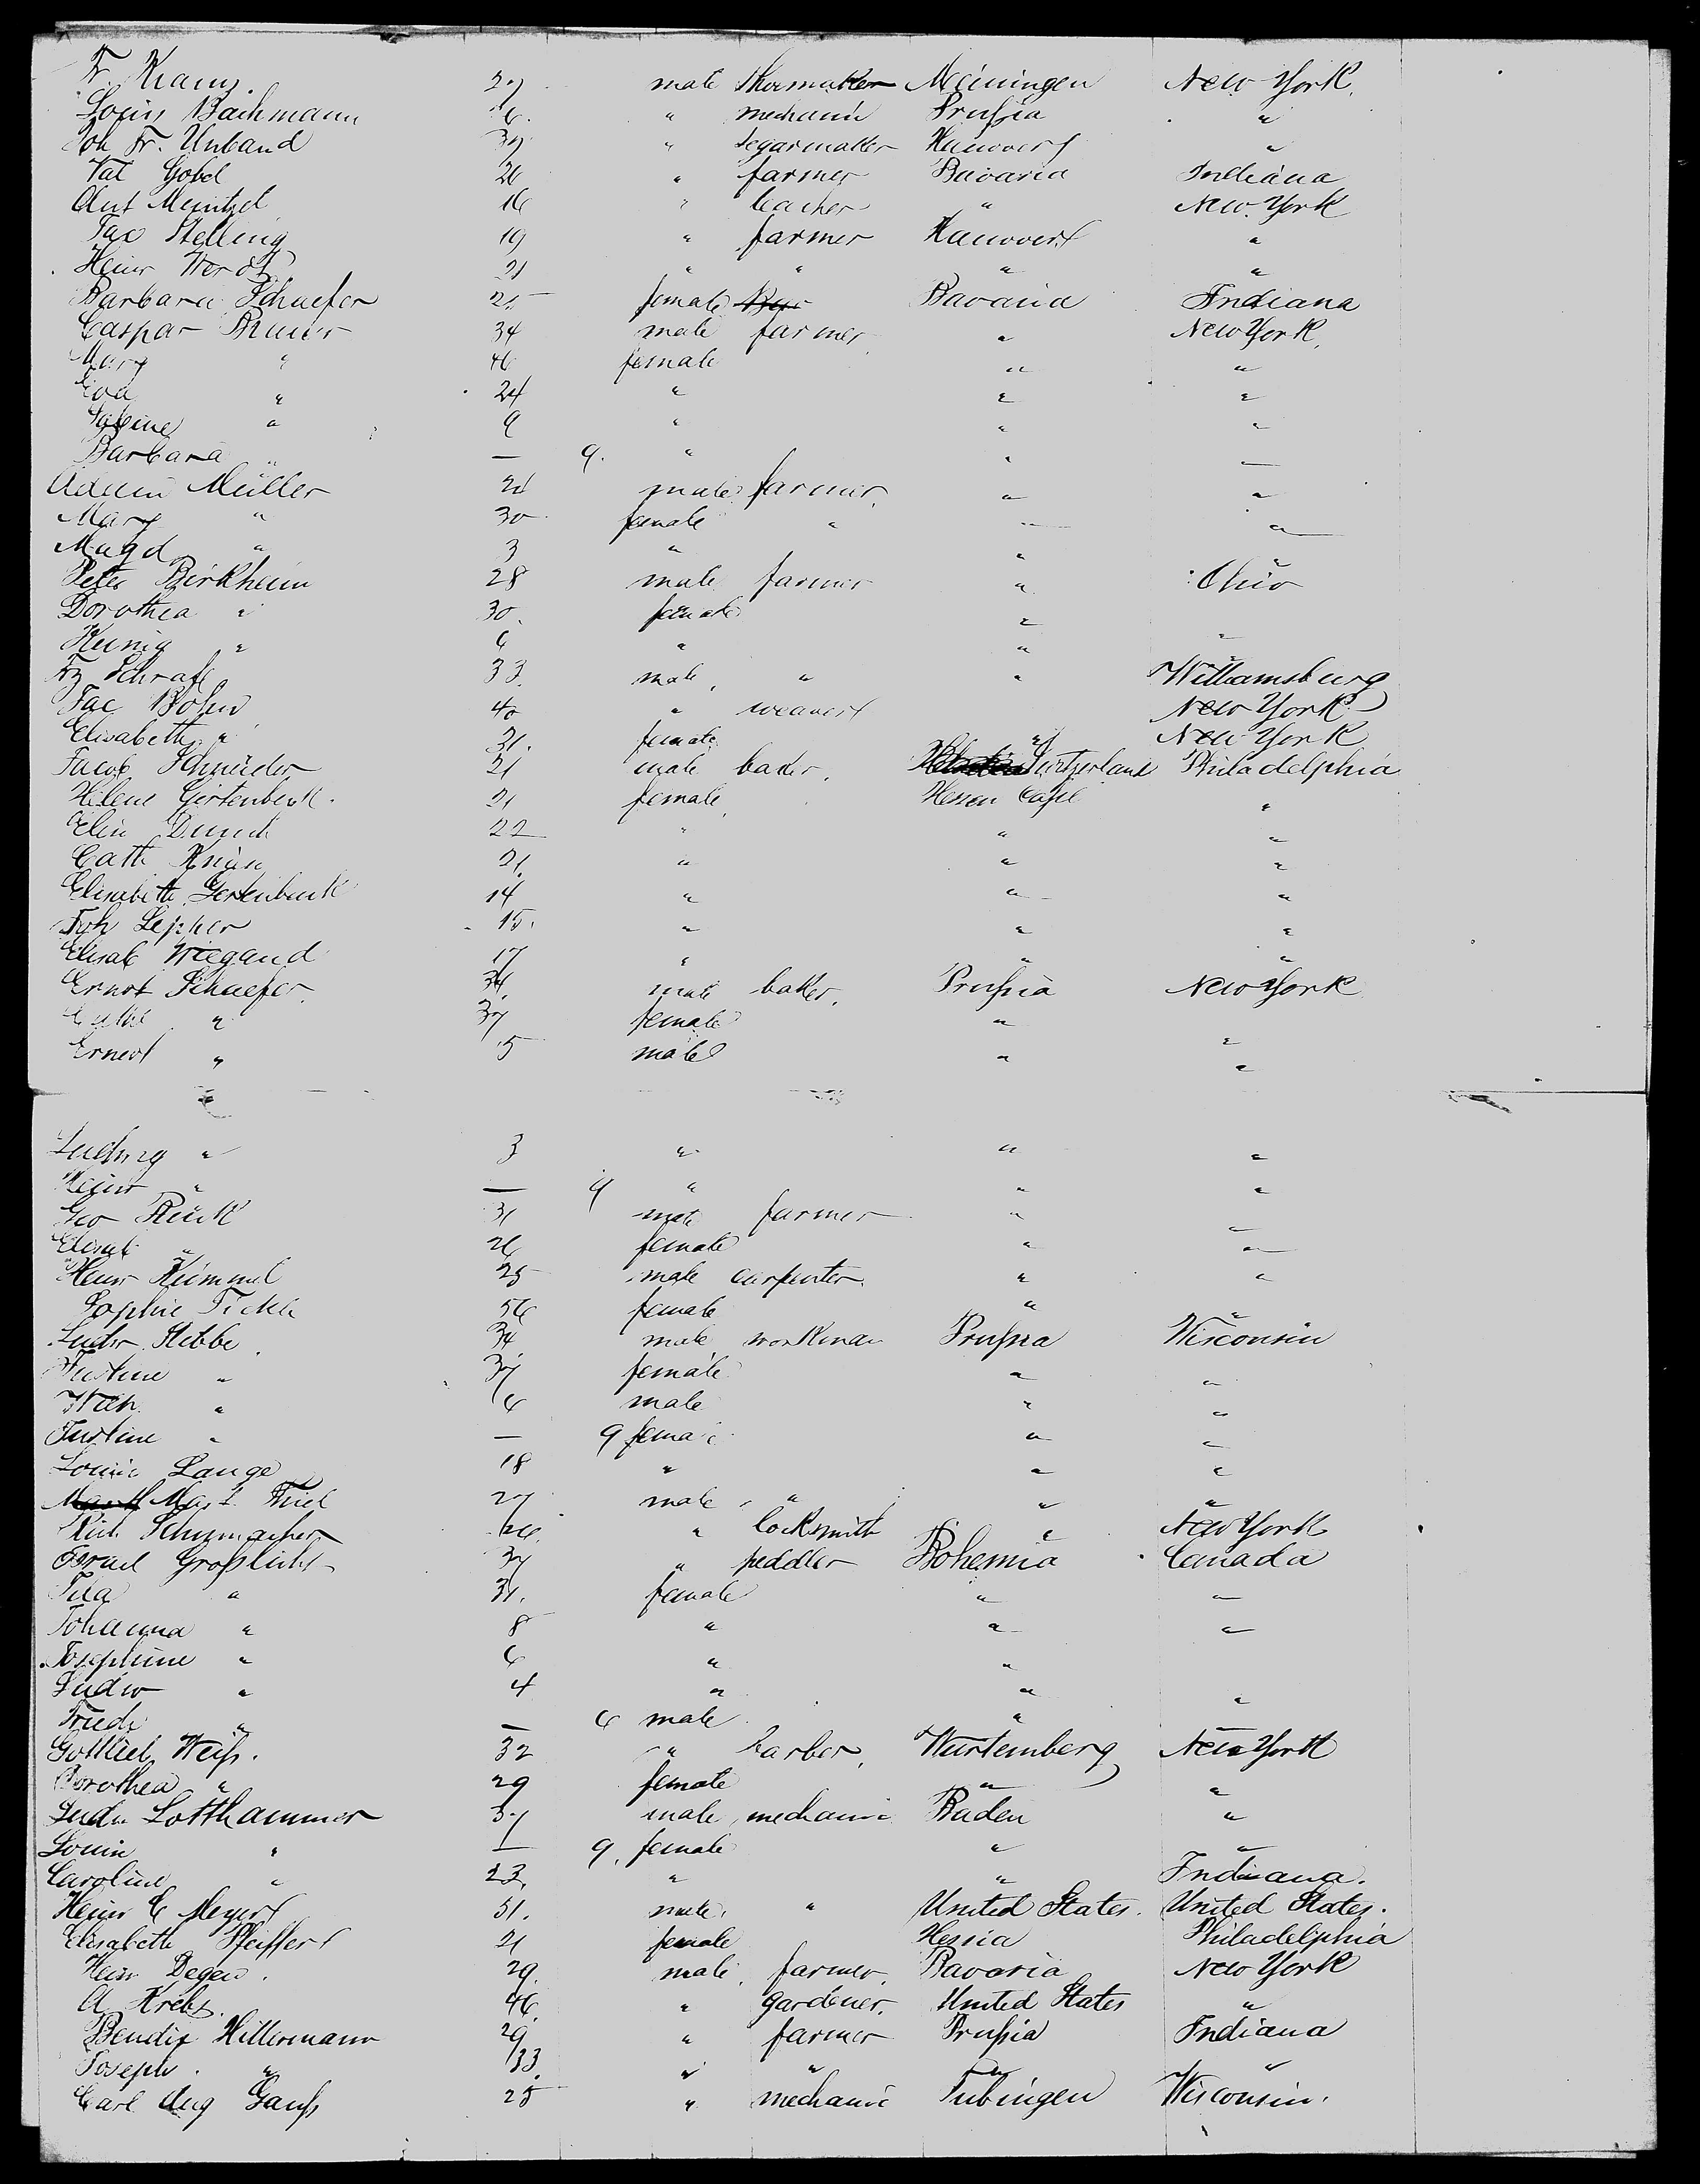 Fr. Kranz. 27 male Shoemaker Meiningen New York.
Louis Bachmann 6. " mechanic Prußia "
Joh Fr. Unband 37 " segarmaker Hannover "
Vat Gobel 26 " farmer Bavaria Indiana
Ant Meintzel 16 " teacher " New York
Jac Stelling 19 " farmer Hannover "
Heinr Werdt 21 " " " "
Barbara Schaefer 25 female Bavaria Indiana
Caspar Bruner 34 male farmer " New York.
Marg " 46 female " "
Eva " 24 " " "
Sabine " 9 " " "
Barbara " — 9. " " "
Adam Müller 21 male farmer. " "
Marg " 30 female " " "
Magd " 3 " " "
Peter Birkheim 28 male farmer " Ohio
Dorothea " 30. female " "
Kunig " 6 " " "
Fz Schraft 33. male " " Williamsburg
Jac Bohn 40 " weaver New York
Elisabeth " 31. female " New York
Jacob Schneider 21 male baker. Switzerland Philadelphia
Helene Gertenbank. 21 female Hessen Caßel "
Elis 22 " " "
Cath 21. " " "
Elisabeth Gertenbank 14 " " "
Joh Lepher 15. " " "
Elisab Wiegand 17 " " "
Ernst Schaefer. 34. male baker. Prußia New York
Cath " 37 female " "
Ernest " 5 male " "
Ludwig " 3 " " "
Heinr " — 9 " " "
Geo Rück 31 male farmer " "
Elisab " 26 female " "
Heinr Kümmel 25 male carpenter. " "
Sophie 56 female " "
Ludw. Stebbe 34 male workman Prußia Wisconsin
Justine " 37 female " "
" 6 male " "
Justine " — 9 female " "
Louise Lange 18 " " "
Mart. Thiel 27 male " " "
Rich Schumacher 24. " locksmith " New York
Israel Großlicht 37 " peddler Bohemia Canada
" 31. female " "
Johanna " 8 " " "
Josephine " 6 " "
Ludw " 4 " " "
Friedr " — 6 male " "
Gottlieb Weiß. 32 " barber. Wurtemberg New York
Dorothea " 29 female " "
Ludw Lotthammer 37 male mechanic Baden "
Louise " — 9. female " "
Caroline " 23. " " Indiana.
Heinr C Meyer 51. male. " United States. United States.
Elisabeth Pfeiffer 21 female Hessia Philadelphia
Heinr Degen. 29. male. farmer. Bavaria New York
A Krebs. 46. " gardener. United States "
Bendix Hillermann 29. " farmer Prußia Indiana
Joseph. " 33. " " " "
Carl Aug Ganß 25 " mechanic Tubingen Wisconsin.